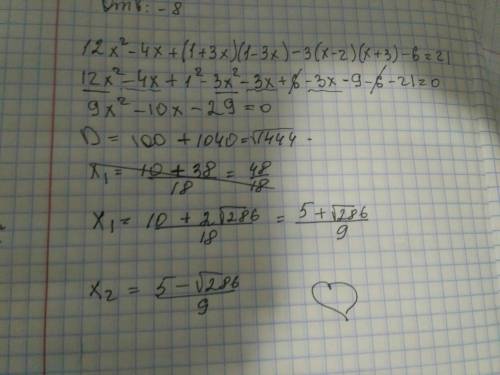 Отв: -8
12x² - 4x + (1+3x)(1-3x) - 3(x-2)(x+3) - 6 = 21
12x² - 4x + 1² - 3x² - 3x + 6 - 3x - 9 - 6 - 21 = 0
9x² - 10x - 29 = 0
D = 100 + 1040 = √1444
x₁ = 10 + 38 / 18 = 48 / 18
x₁ = 10 + 2√286 / 18 = 5 + √286 / 9
x₂ = 5 - √286 / 9